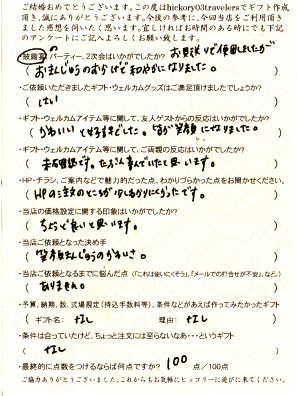 ご結婚おめでとうございます。この度はhickory03travelersでギフト作成
頂き、誠にありがとうございます。今後の参考に、今回当店をご利用頂き
ました感想を伺いたく思います。宜しければお時間のある時にでも下記
のアンケートにご記入よろしくお願い致します。
披露宴・パーティー、2次会はいかがでしたか? お見送りで使用しましたが
(おまんじゅうのおかげで和やかになりました。)
・ご依頼いただきましたギフト・ウェルカムグッズはご満足頂けましたでしょうか?
(はい)
・ギフト・ウェルカムアイテム等に関して、友人ゲストからの反応はいかがでしたか?
(かわいいと好評でした。皆が笑顔になりました。)
・ギフト・ウェルカムアイテム等に関して、ご両親の反応はいかがでしたか?
(未確認です。たぶん喜んでいたと思います。)
・HP・チラシ、ご案内などで魅力的だった点、わかりづらかった点をお聞かせください。
(HPの注文のところが少しわかりにくかったです。)
・当店の価格設定に関する印象はいかがでしたか?
(ちょうど良いと思います。)
・当店ご依頼となった決め手
(笑顔まんじゅうのかわいさ。)
・当店ご依頼となるまでに悩んだ点(「これは使いにくそう」、「メールでの打合せが不安」、など。)
(ありません。)
・予算、納期、数、式場規定(持込手数料等)、条件などがあえば作ってみたかったギフト
(ギフト名: なし 理由: なし)
・条件は合っていたけど、ちょっと注文には至らないなあ・・・というギフト
(なし)
・最終的に点数をつけるならば何点ですか? 100 点/100点
ご協力ありがとうございました。これからもお気軽にヒッコリーに遊びに来てください。